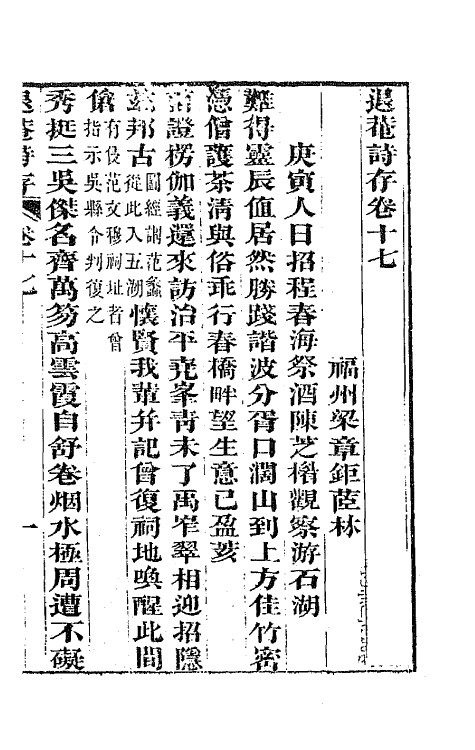 退菴詩存卷十七
福州梁章鉅茝林
庚寅人日招程春海祭酒陳芝楣觀察游石湖
難得靈辰值居然勝踐諧波分胥口濶山到上方佳竹密
憑僧護茶清與俗乖行春橋畔望生意已盈荄
詰證楞伽義還來訪治平堯峯青未了禹穴翠相迎招隱
茲邦古
圖經謂范蠡
從此入五湖
懷賢我輩并記曾復祠地喚醒此間
傖
有侵范文穆祠址者曾
指示吳縣令判復之
秀挺三吳傑名齊萬笏高雲霞自舒卷烟水極周遭不礙
退菴詩存
卷十七
一